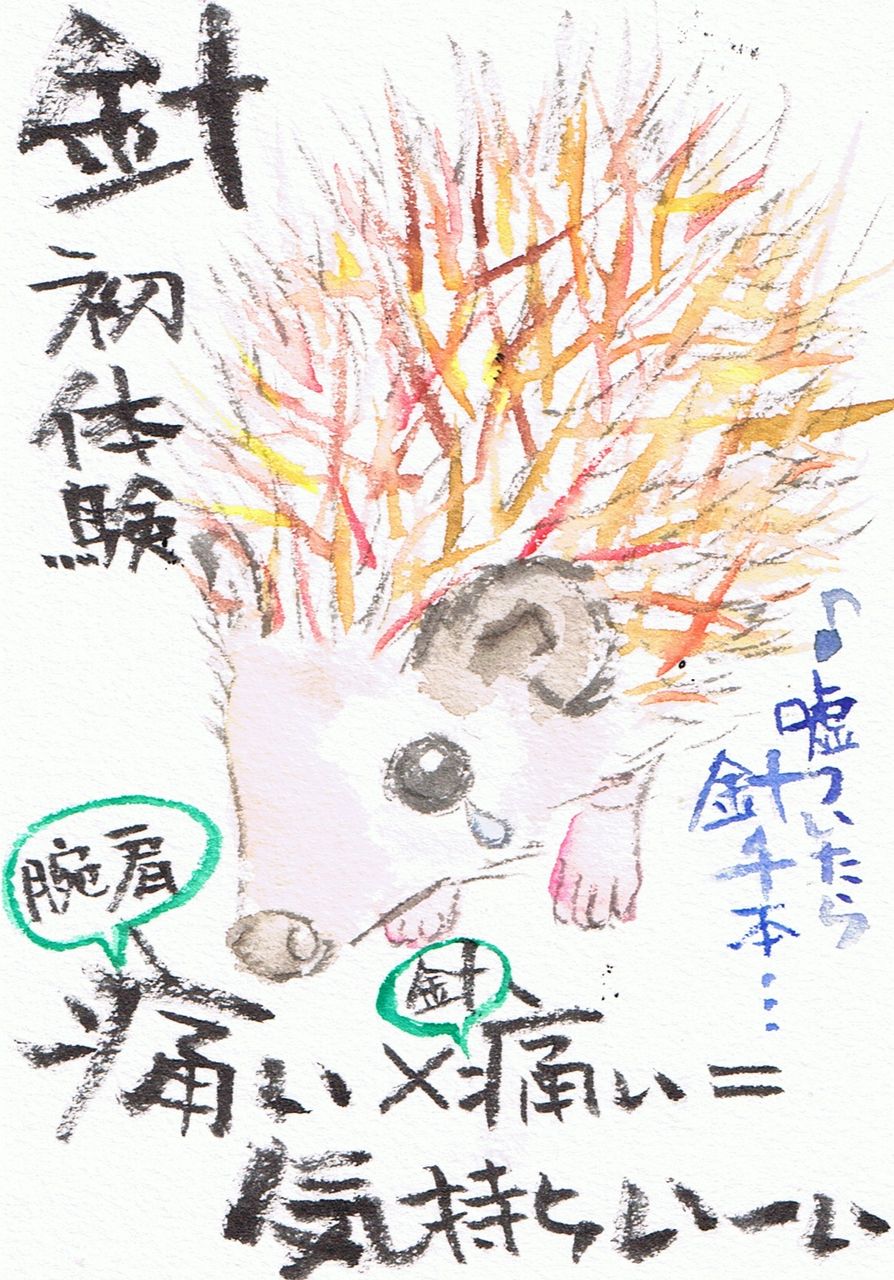 針
初体験
♪嘘ついたら
針千本…
腕肩
針
痛い×痛い=
気持ちいーい